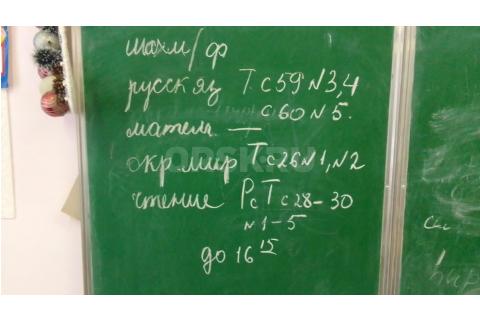 шахм/ф
русск яз Т. с 59 N 3,4
с 60 N 5.
матем —
окр. мир Т с 26 N1, N2
чтение РсТ с 28–30
N 1–5
до 16 15
ORSK.RU